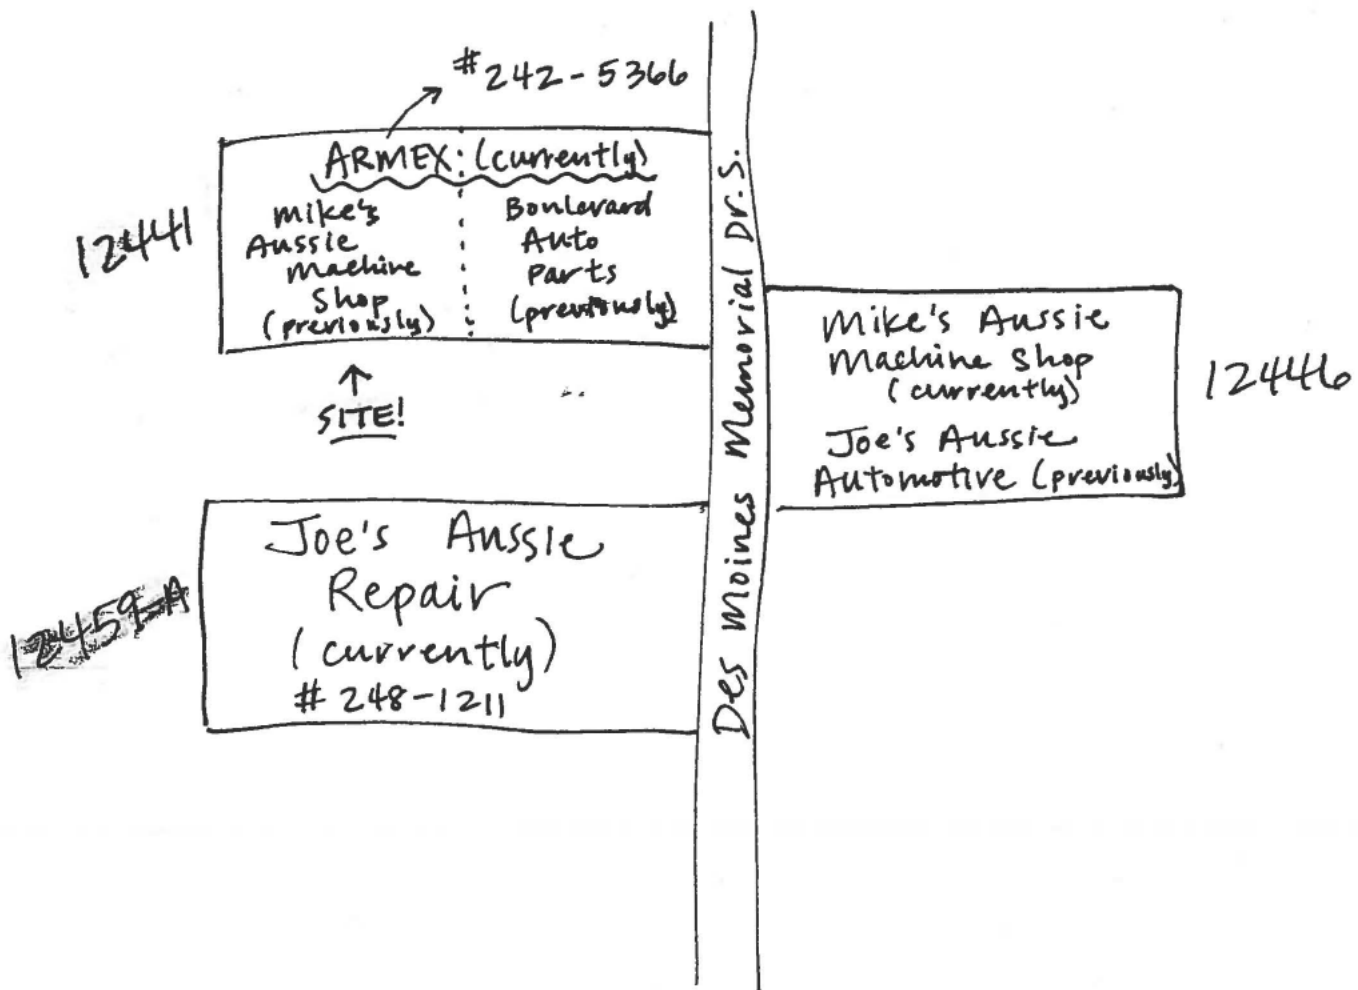 #242-5366
ARMEX (currently)
12441
Mike's
Aussie
Machine
Shop
(previously)
Boulevard
Auto
Parts
(previously)
↑
SITE!
Des Moines Memorial Dr. S.
Mike's Aussie
Machine Shop
(currently)
Joe's Aussie
Automotive (previously)
12446
Joe's Aussie
Repair
(currently)
#248-1211
12459-A